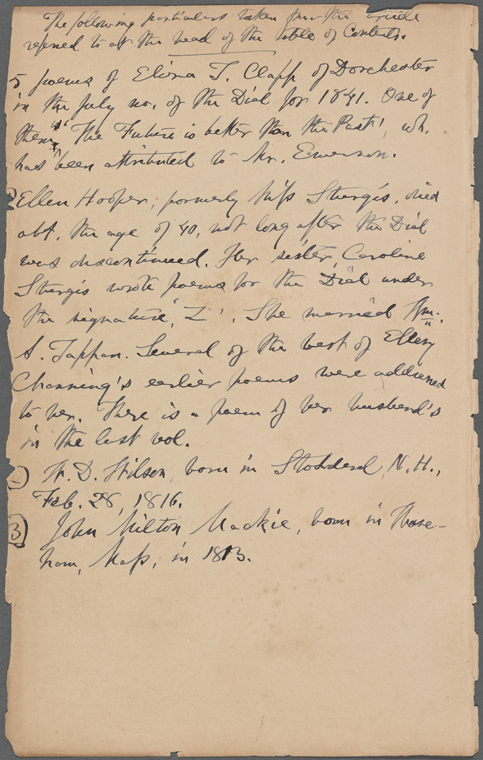 The following particulars taken from the article
referred to at the head of the table of Contents.
5 poems of Eliza T. Clapp of Dorchester
in the July no. of the Dial for 1841. One of
them, "The Future is better than the Past", wh.
has been attributed to Mr. Emerson.
Ellen Hooper; formerly Miss Sturgis, died
abt. the age of 40, not long after the Dial
was discontinued. Her sister, Caroline
Sturgis wrote poems for the Dial under
the signature, 'Z'. She married Wm.
A. Tappan. Several of the best of Ellery
Channing's earlier poems were addressed
to her. There is a poem of her husband's
in the last vol.
2) W. D. Wilson, born in Stoddard, N.H.,
Feb. 28, 1816.
3) John Milton Mackie, born in Ware-
ham, Mass, in 1813.